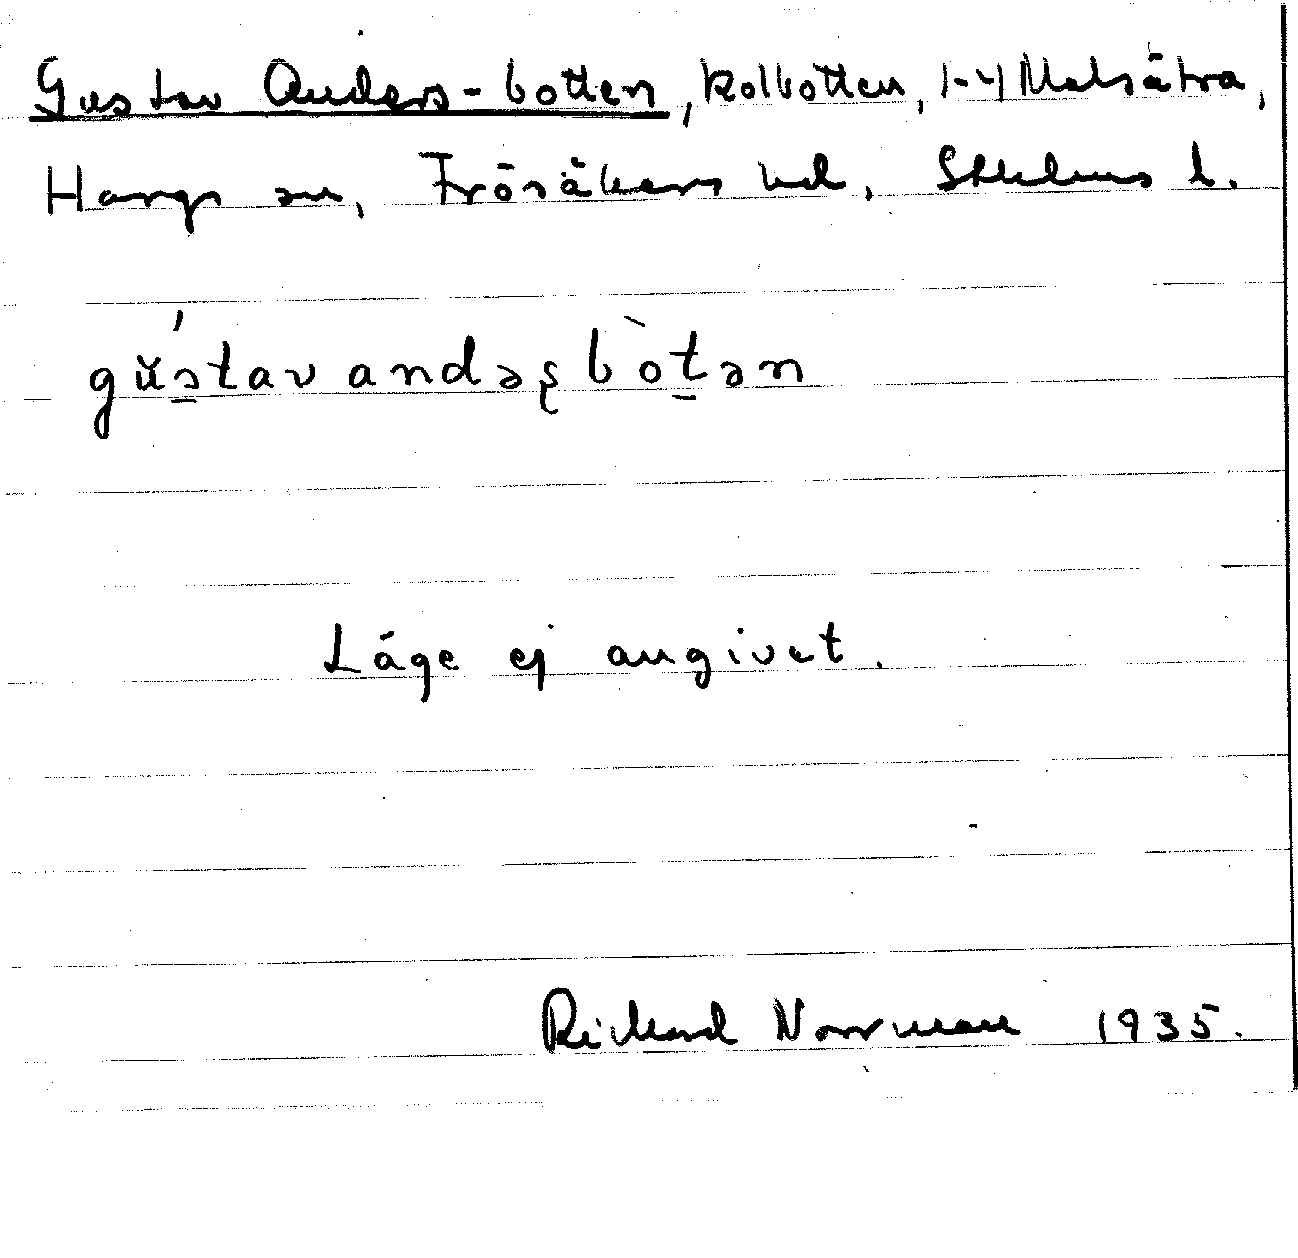 Gustav Anders-botten, kolbotten, 1-4 Malsätra,
Hargs sn, Frösåkers hd, Sthlms l.
gŭ́s̠tav andəʂbòt̠ən
Läge ej angivet.
Richard Norrman 1935.